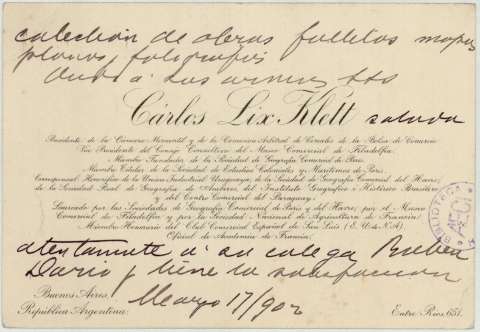 colección de obras folletos mapas
planos, fotografías
Carlos Lix Klett saluda
Presidente de la Cámara Mercantil y de la Comisión Arbitral de Cereales de la Bolsa de Comercio
Vice Presidente del Consejo Consultivo del Museo Comercial de Filadelfia
Miembro Fundador de la Sociedad de Geografía Comercial de Paris
Miembro Titular de la Sociedad de Estudios Coloniales y Marítimos de Paris
Corresponsal Honorario de la Union Industrial Uruguaya, de la Sociedad de Geografía Comercial del Havre,
de la Sociedad Real de Geografía de Amberes, del Instituto Geográfico é Histórico Brasilero
y del Centro Comercial del Paraguay
Laureado por las Sociedades de Geografía Comercial de Paris y del Havre, por el Museo
Comercial de Filadelfia y por la Sociedad Nacional de Agricultura de Francia
Miembro Honorario del Club Comercial Español de San Luis (E. U. de N. A.)
Oficial de Academia de Francia
atentamente á su colega Ruben
Dario y tiene la
Buenos Aires, Marzo 17/902
República Argentina. Entre Rios 651.
BIBLIOTECA